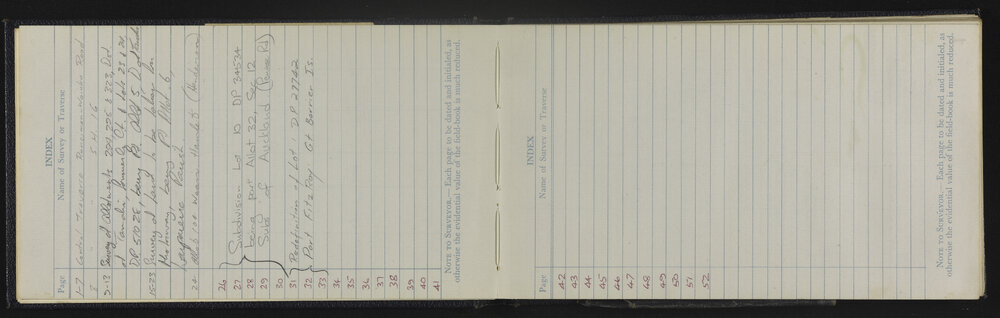 INDEX
Page Name of Survey or Traverse
1-7 Control Traverse Road
8 " " 5. 4. 16
9-13 Survey of Allotments 299, 295 & 323, Dist.
of Tamaki, formerly Pt. of Lots 23 & 24
DP 51028, being Pt. Allot 5 Dist
15-23 Survey of land to be taken for
Motorway, being Pt Allot. 6,
Ranch
24 Allot 100 Hamlets (Henderson)
26
27 Subdivision Lot 10 DP 34534
28 being part Allot 32, Sec 12
29 Subs of Auckland
30
31 Redefinition of Lot DP 29742
32 Port Fitz Roy Gt Barrier Is.
33
34
35
36
37
38
39
40
41
NOTE TO SURVEYOR.—Each page to be dated and initialed, as
otherwise the evidential value of the field-book is much reduced.
INDEX
Page Name of Survey or Traverse
42
43
44
45
46
47
48
49
50
51
52
NOTE TO SURVEYOR.—Each page to be dated and initialed, as
otherwise the evidential value of the field-book is much reduced.